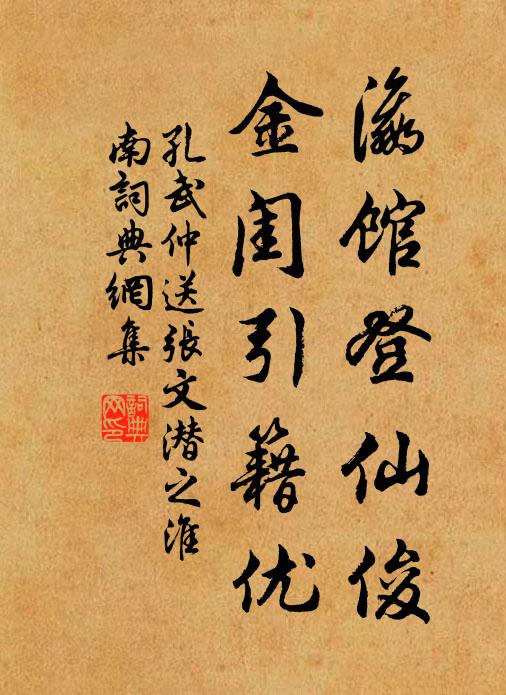 瀛馆登仙俊
金闺引籍优
孔武仲送張文潜之淮
南詞典網集
詞典
网印